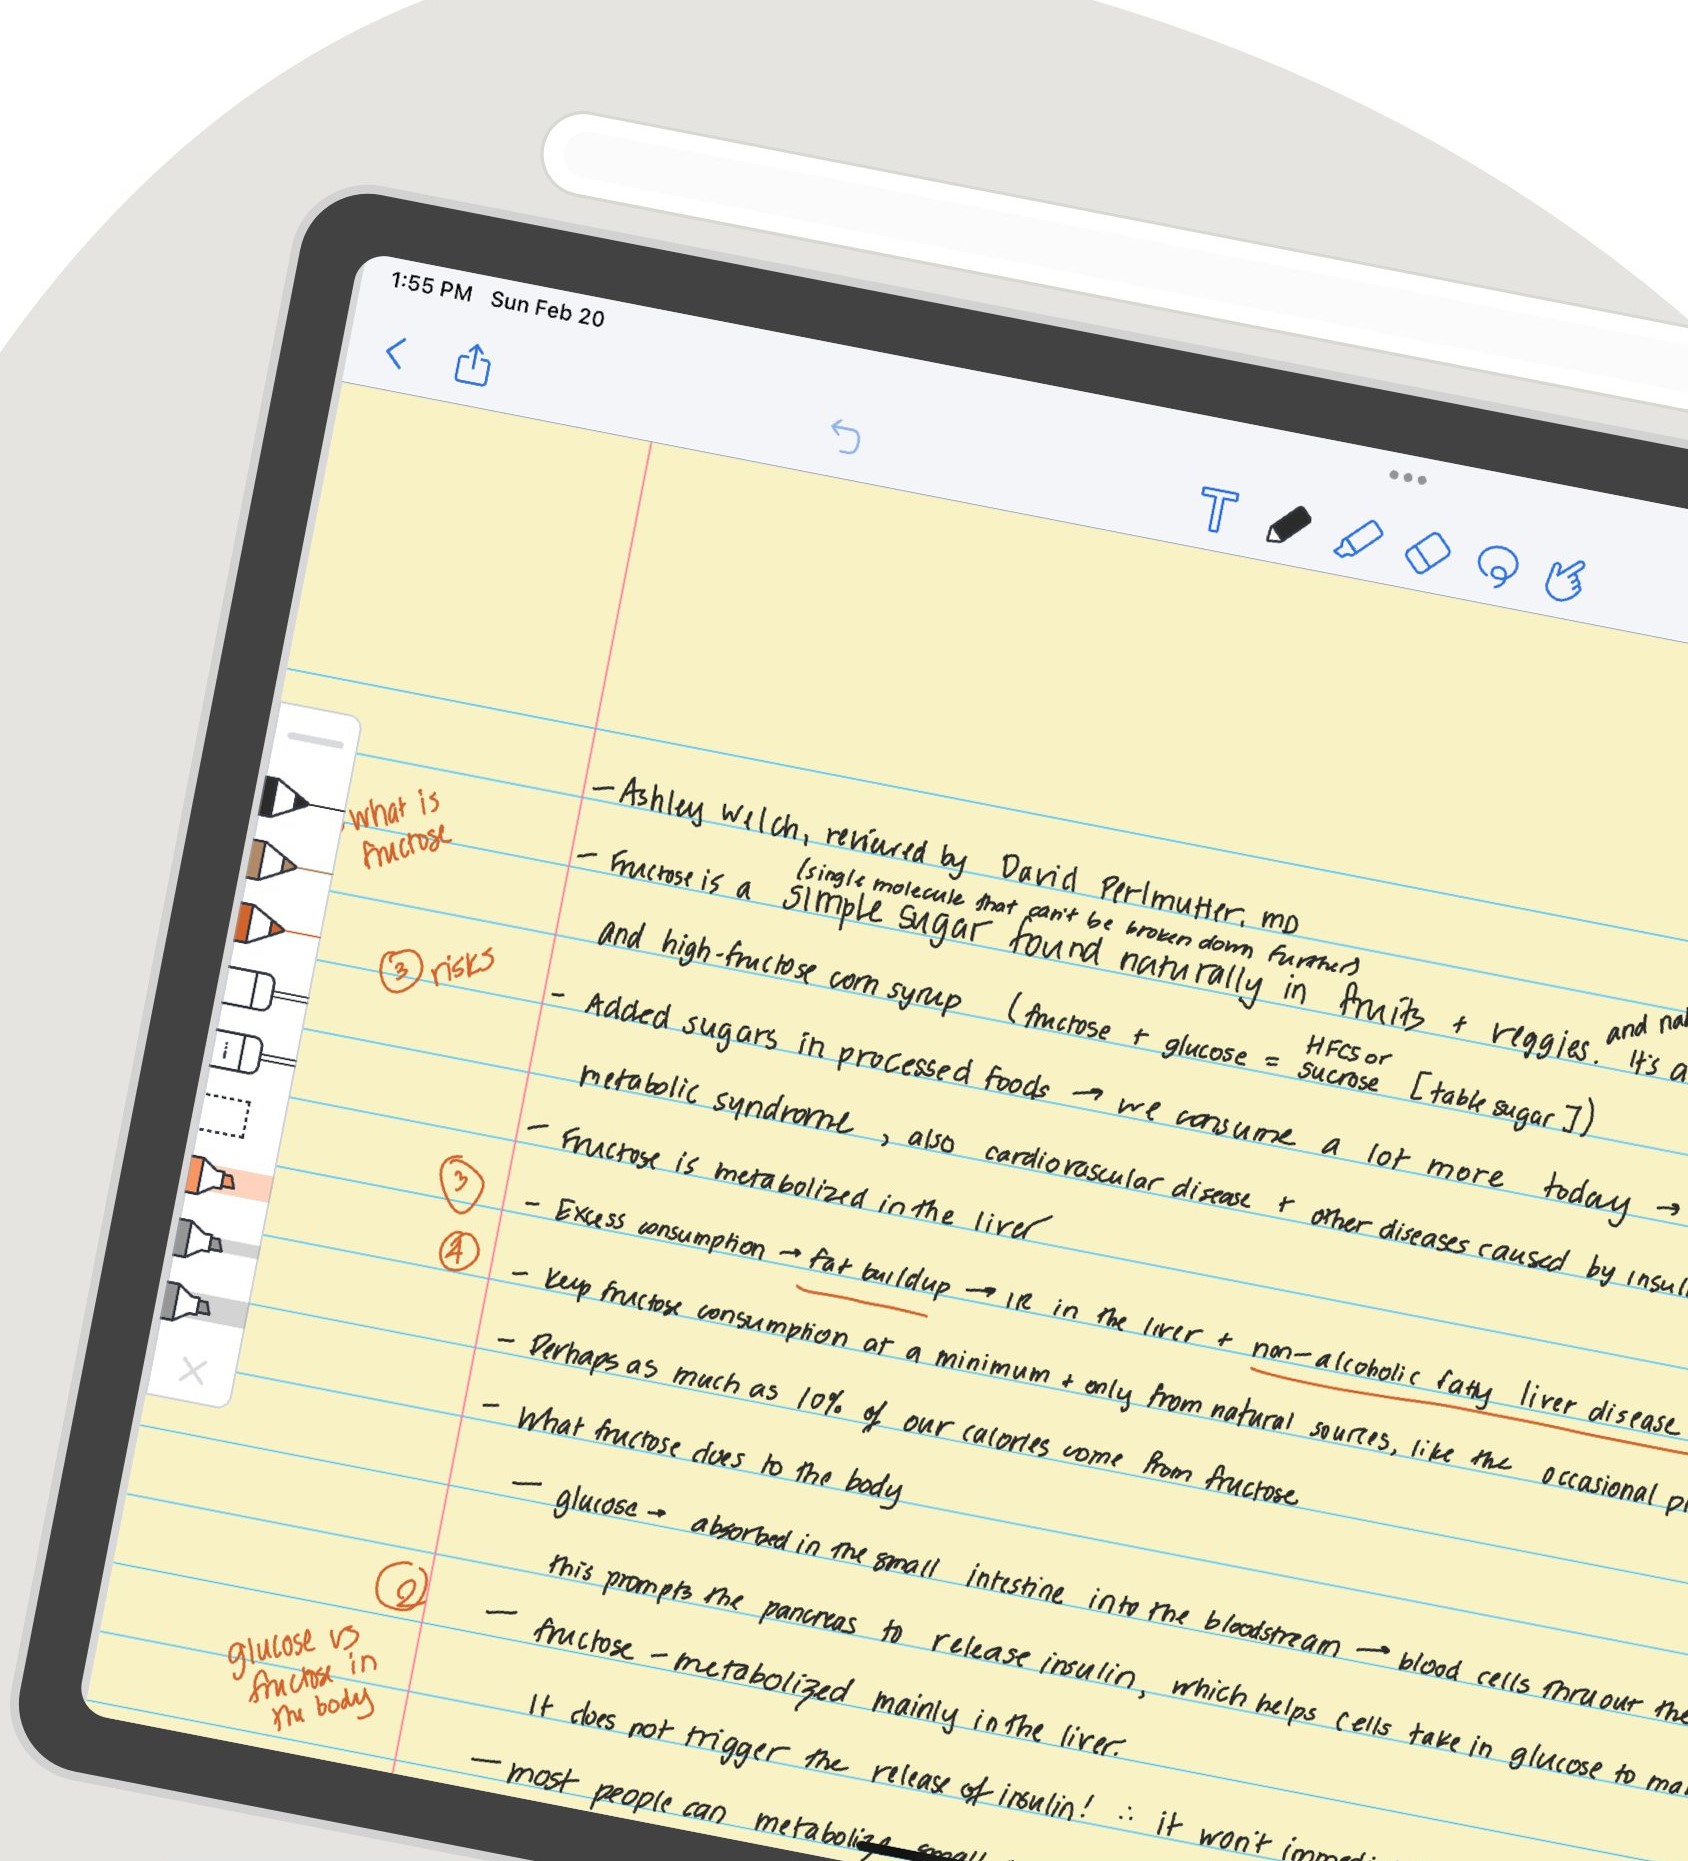 1:55 PM Sun Feb 20
T
what is
fructose
– Ashley Welch, reviewed by David Perlmutter, MD
(single molecule that can't be broken down further)
– Fructose is a simple sugar found naturally in fruits + veggies. and
and high-fructose corn syrup (fructose + glucose = HFCS or sucrose [table sugar]) It's a
③ risks
– Added sugars in processed foods → we consume a lot more today →
metabolic syndrome, also cardiovascular disease + other diseases caused by
– Fructose is metabolized in the liver
③
– Excess consumption → fat buildup → IR in the liver + non-alcoholic fatty liver disease
④
– Keep fructose consumption at a minimum + only from natural sources, like the occasional
– Perhaps as much as 10% of our calories come from fructose
– What fructose does to the body
– glucose → absorbed in the small intestine into the bloodstream → blood cells thruout the
this prompts the pancreas to release insulin, which helps cells take in glucose to
②
glucose vs
fructose in
the body
– fructose – metabolized mainly in the liver.
It does not trigger the release of insulin! ∴ it won't
– most people can metabolize small